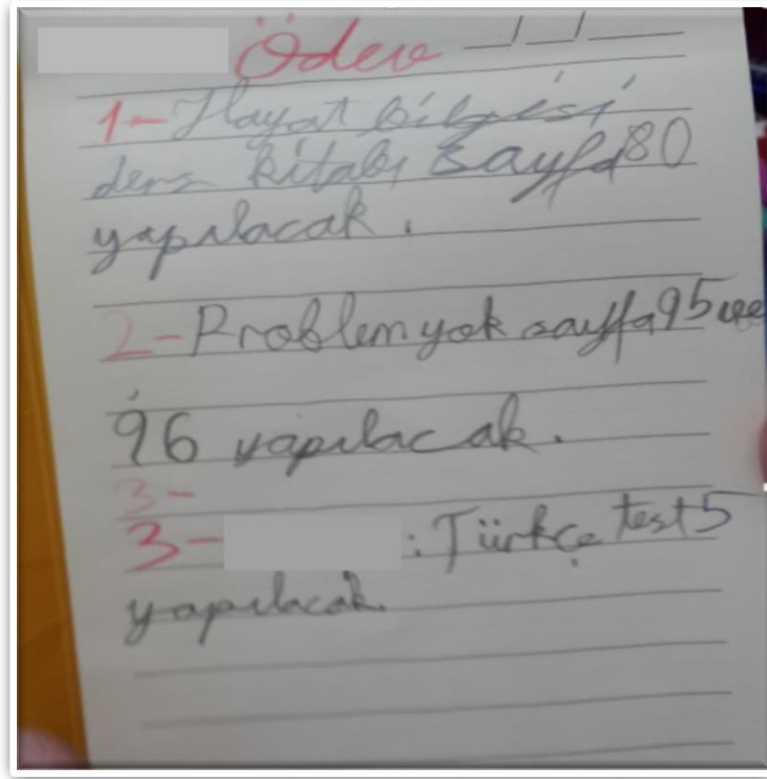 Ödev _/_/_
1- Hayat bilgisi
ders kitabı sayfa 80
yapılacak.
2- Problem yok sayfa 95 ve
96 yapılacak.
3-
3- : Türkçe test 5
yapılacak.